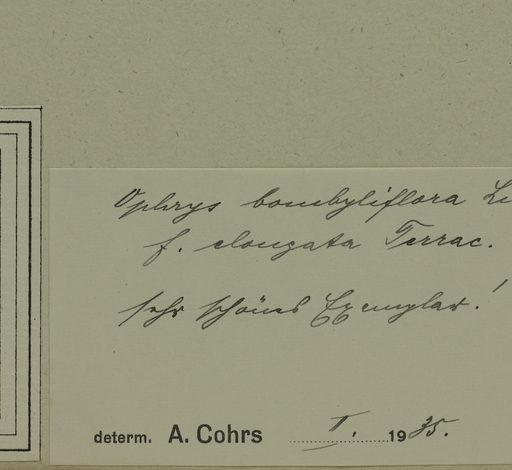 Ophrys bombyliflora
f. elongata Terrac.
sehr schönes Exemplar!
determ. A. Cohrs II. 1935.